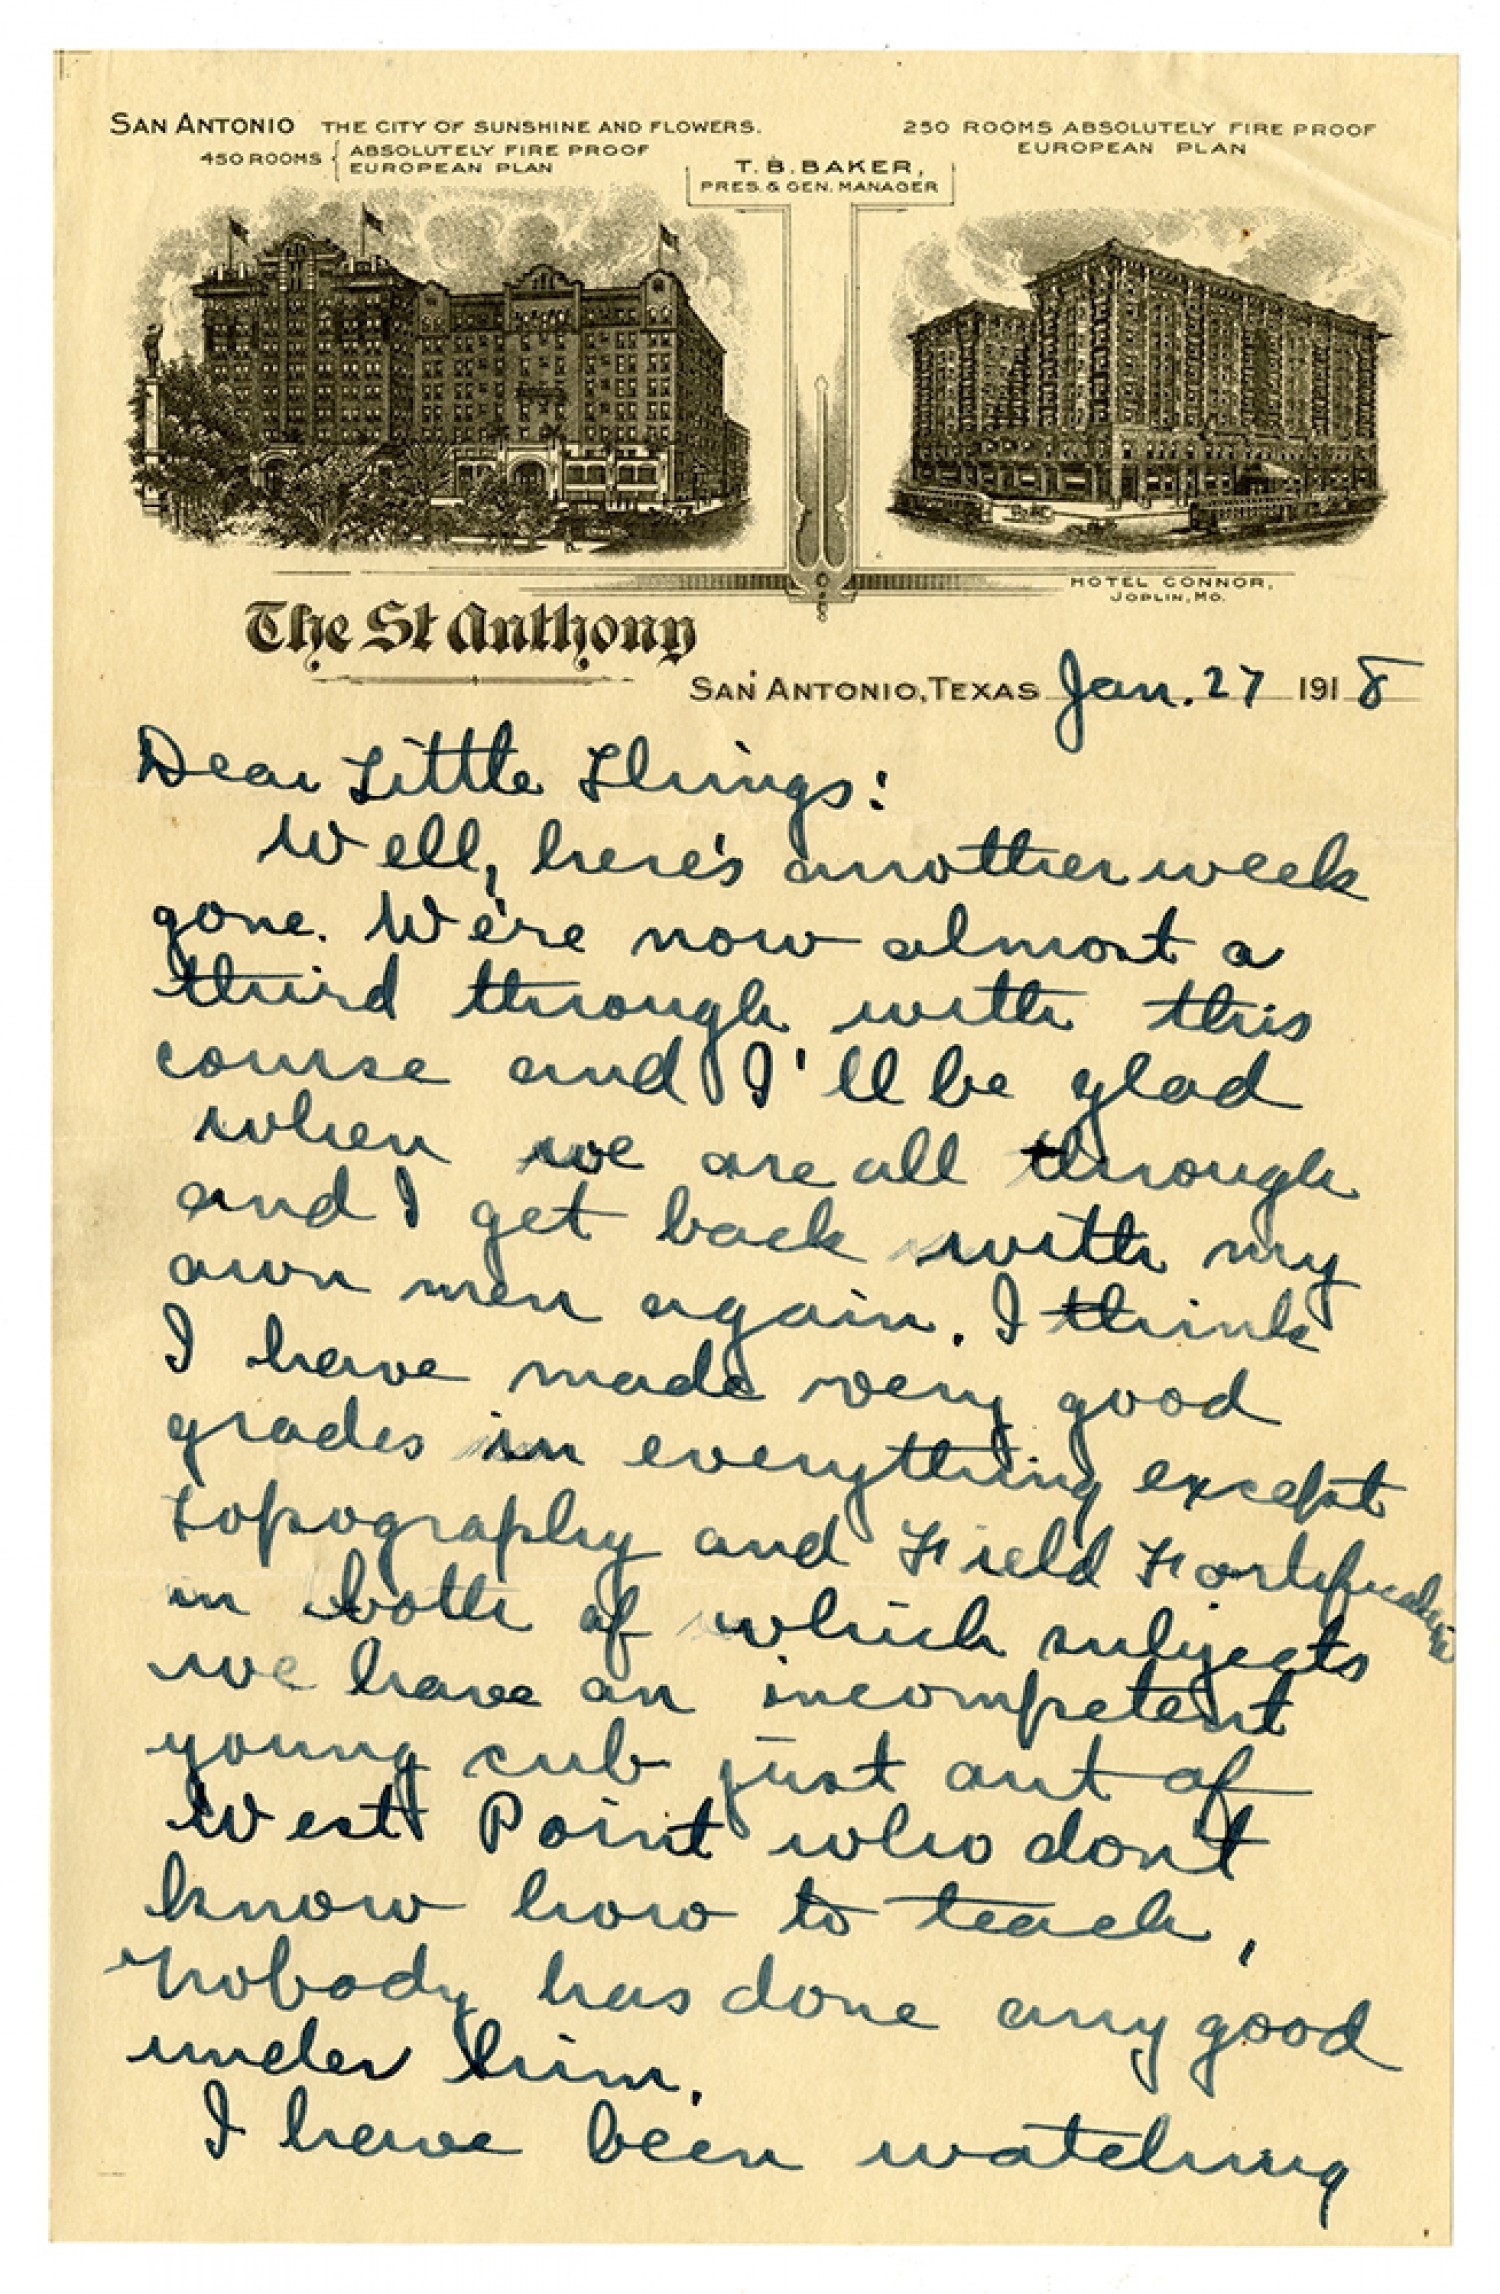 SAN ANTONIO THE CITY OF SUNSHINE AND FLOWERS.
450 ROOMS { ABSOLUTELY FIRE PROOF
EUROPEAN PLAN
T. B. BAKER,
PRES. & GEN. MANAGER
250 ROOMS ABSOLUTELY FIRE PROOF
EUROPEAN PLAN
HOTEL CONNOR,
JOPLIN, MO.
The St Anthony
SAN ANTONIO, TEXAS Jan. 27 1918
Dear Little Things:
Well, here's another week
gone. We're now almost a
third through with this
course and I'll be glad
when we are all through
and I get back with my
own men again. I think
I have made very good
grades in everything except
topography and Field Fortification
in both of which subjects
we have an incompetent
young cub just out of
West Point who don't
know how to teach,
Nobody has done any good
under him.
I have been watching